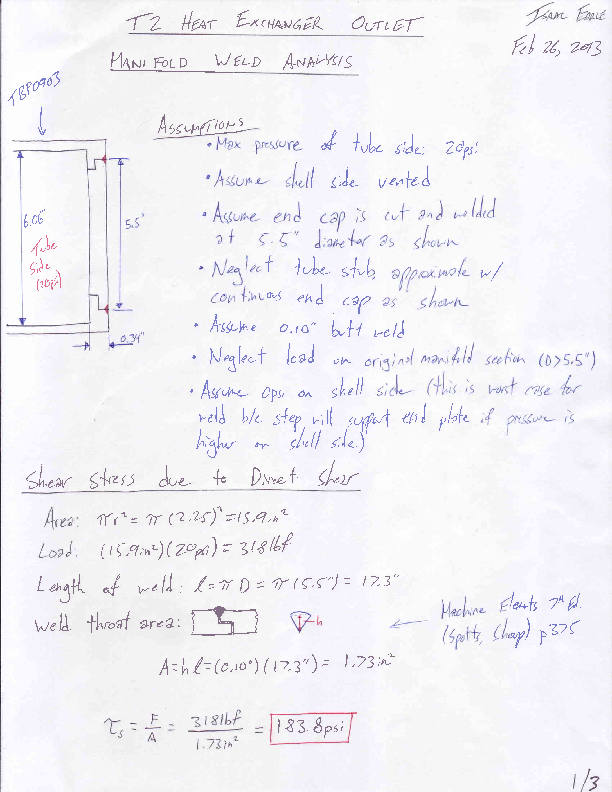 T2 HEAT EXCHANGER OUTLET
MANIFOLD WELD ANALYSIS
Isaac Earle
Feb 26, 2013
TBP0903
6.06"
Tube
Side
(20psi)
5.5"
0.34"
ASSUMPTIONS
• Max pressure of tube side: 20psi
• Assume shell side vented
• Assume end cap is cut and welded
at 5.5" diameter as shown
• Neglect tube stub, approximate w/
continuous end cap as shown
• Assume 0.10" butt weld
• Neglect load on original manifold section (D>5.5")
• Assume 0psi on shell side (this is worst case for
weld b/c step will support end plate if pressure is
higher on shell side.)
Shear Stress due to Direct Shear
Area: πr² = π(2.25)² = 15.9in²
Load: (15.9in²)(20psi) = 318lbf
Length of weld: l = πD = π(5.5") = 17.3"
Weld throat area:
h
Machine Elements 7th Ed.
(Spotts, Shoup) p375
A = hl = (0.10")(17.3") = 1.73in²
τs = F/A = 318lbf/1.73in² = 183.8psi
1/3